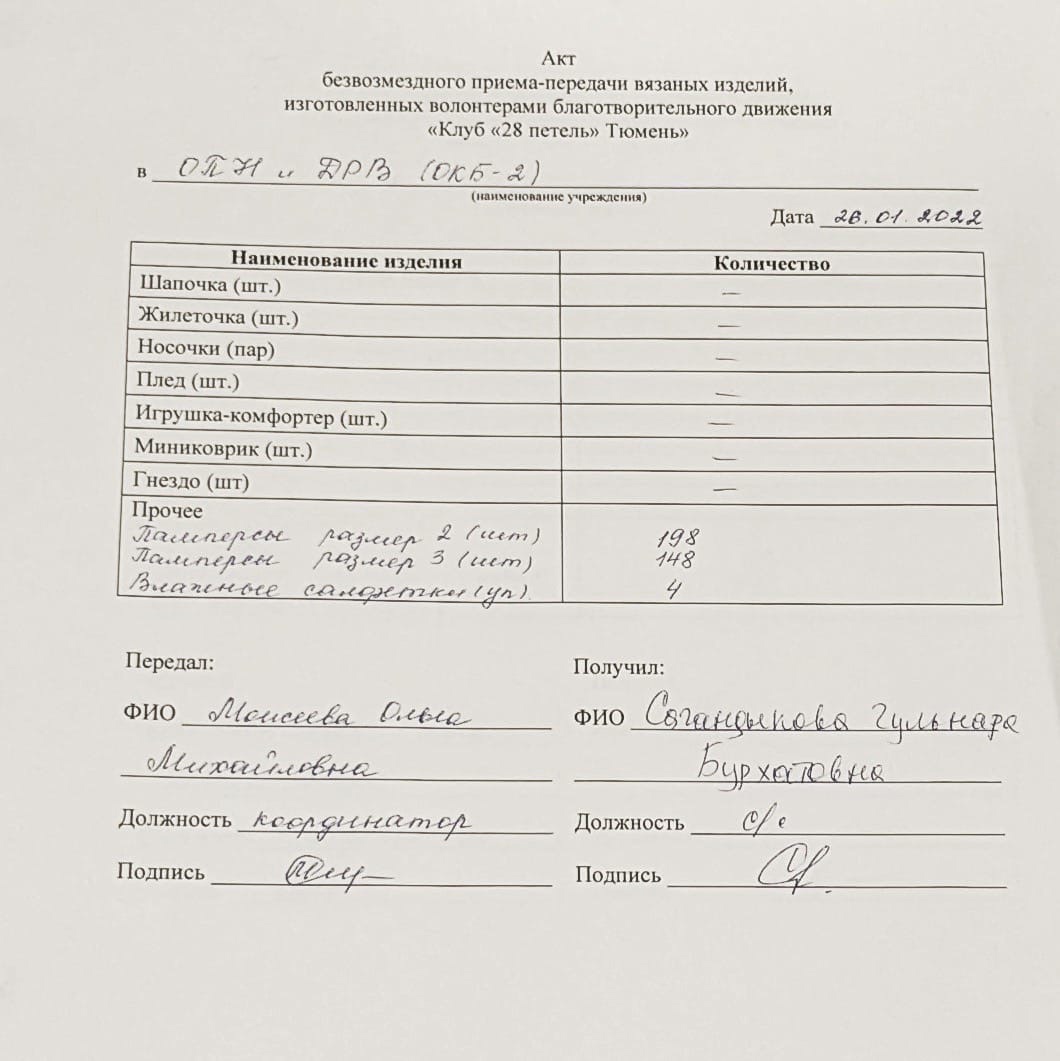 Акт
безвозмездного приема-передачи вязаных изделий,
изготовленных волонтерами благотворительного движения
«Клуб «28 петель» Тюмень»
в ОПН и ДРВ (ОКБ-2)
(наименование учреждения)
Дата 26.01.2022
Наименование изделия Количество
Шапочка (шт.) —
Жилеточка (шт.) —
Носочки (пар) —
Плед (шт.) —
Игрушка-комфортер (шт.) —
Миниковрик (шт.) —
Гнездо (шт) —
Прочее
Памперсы размер 2 (шт) 198
Памперсы размер 3 (шт) 148
Влажные салфетки (уп). 4
Передал: Получил:
ФИО Моисеева Ольга ФИО Сагандыкова Гульнара
Михайловна Бурхатовна
Должность координатор Должность с/с
Подпись Подпись